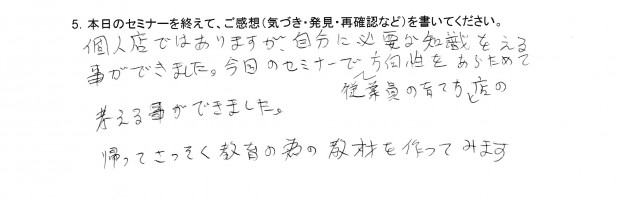 5. 本日のセミナーを終えて、ご感想(気づき・発見・再確認など)を書いてください。
個人店ではありますが、自分に必要な知識をえる
事ができました。今回のセミナーで方向性をあらためて
従業員の育て方と店の
考える事ができました。
帰ってさっそく教育の為の教材を作ってみます